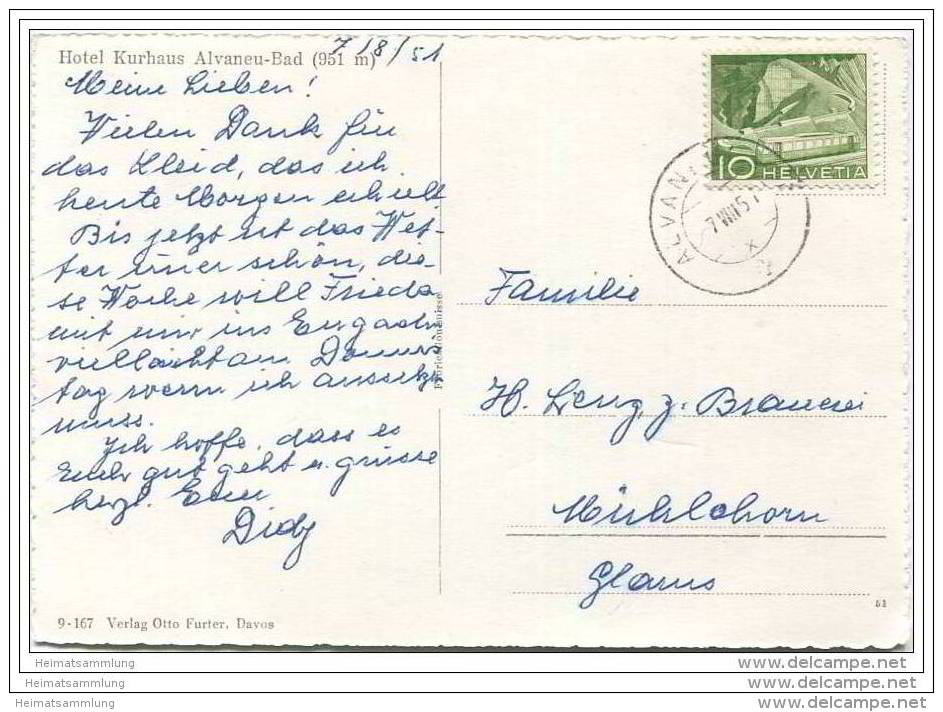 Hotel Kurhaus Alvaneu-Bad (951 m)
7/8/51
Meine Lieben!
Vielen Dank für
das Kleid, das ich
heute Morgen erhielt
Bis jetzt ist das Wet-
ter imer schön, die-
se Woche will Frieda
mit mir ins Engadin
vielleicht am Donners
tag wenn ich aussetzen
muss.
Ich hoffe, dass es
Euch gut geht u. grüsse
herzl. Eure
Didy
9-167 Verlag Otto Furter, Davos
10 HELVETIA
ALVANEU
7 VIII 51
Familie
H. Leng, z. Brauerei
Mühlehorn
Glarus
Heimatsammlung
Heimatsammlung
Heimatsammlung
www.delcampe.net
www.delcampe.net
www.delcampe.net